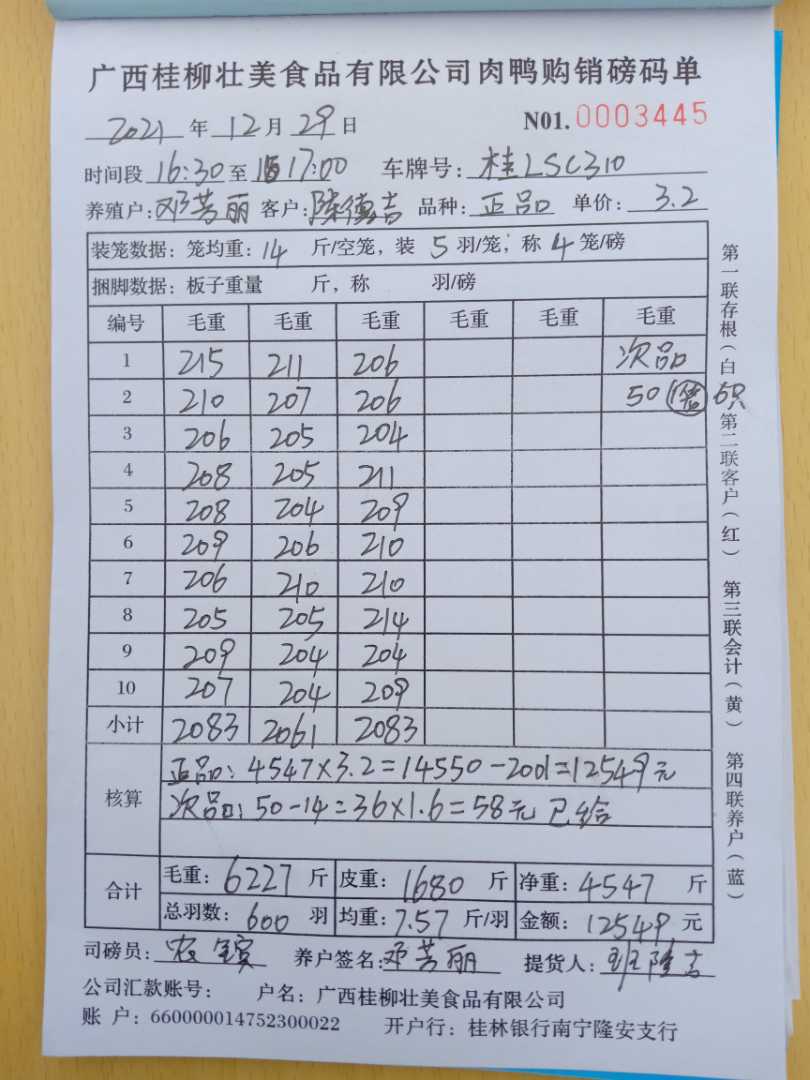 广西桂柳壮美食品有限公司肉鸭购销磅码单
2021 年 12 月 29 日 N01. 0003445
时间段 16:30 至 17:00 车牌号: 桂LSC310
养殖户: 邓芳丽 客户: 陈德吉 品种: 正品 单价: 3.2
装笼数据: 笼均重: 14 斤/空笼, 装 5 羽/笼, 称 4 笼/磅
捆脚数据: 板子重量 斤, 称 羽/磅
编号 毛重 毛重 毛重 毛重 毛重 毛重
1 215 211 206 次品
2 210 207 206 50 6只
3 206 205 204
4 208 205 211
5 208 204 209
6 209 206 210
7 206 210 210
8 205 205 214
9 209 204 204
10 207 204 209
小计 2083 2061 2083
核算 正品: 4547×3.2=14550-2001=12549元
次品: 50-14=36×1.6=58元 已给
合计 毛重: 6227 斤 皮重: 1680 斤 净重: 4547 斤
总羽数: 600 羽 均重: 7.57 斤/羽 金额: 12549 元
司磅员: 养户签名: 邓芳丽 提货人: 班隆吉
公司汇款账号: 户名: 广西桂柳壮美食品有限公司
账 户: 660000014752300022 开户行: 桂林银行南宁隆安支行
第一联存根(白) 第二联客户(红) 第三联会计(黄) 第四联养户(蓝)